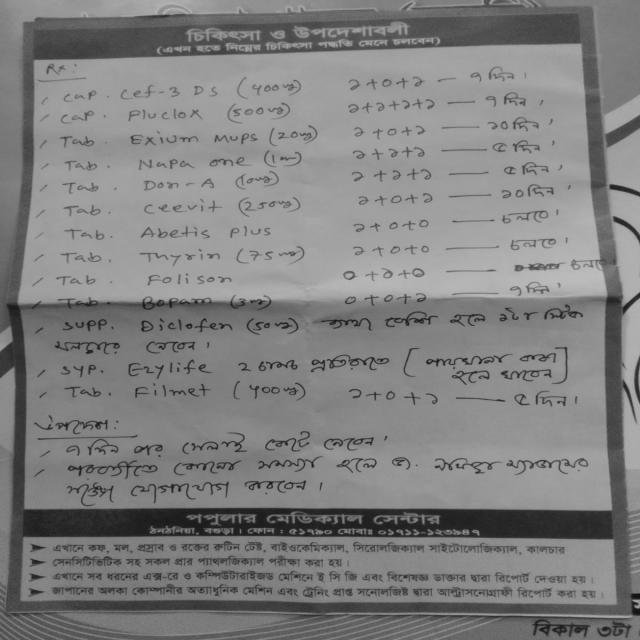 চিকিৎসা ও উপদেশাবলী
(এখন হতে নিম্নের চিকিৎসা পদ্ধতি মেনে চলবেন)
Rx:
cap. cef-3 DS (400mg) ১+০+১ — ৭ দিন।
cap. Pluclox (500mg) ১+১+১+১ — ৭ দিন।
Tab. Exium Mups (20mg) ১+০+১ — ১০ দিন।
Tab. Napa one (1gm) ১+১+১ — ৫ দিন।
Tab. Don-A (10mg) ১+১+১ — ৫ দিন।
Tab. ceevit (250mg) ১+০+১ — ১০ দিন।
Tab. Abetis Plus ১+০+০ — চলবে।
Tab. Thyrin (75mg) ১+০+০ — চলবে।
Tab. Folison ০+১+০ — চলবে
Tab. Bopam (3mg) ০+০+১ — ৭ দিন।
Supp. Diclofen (50mg) ব্যথা বেশি হলে ১টা স্টিক
মলদ্বারে নেবেন।
Syp. Ezylife ২ চামচ প্রতিরাতে [পায়খানা কষা
হলে খাবেন]
Tab. Filmet (400mg) ১+০+১ — ৫ দিন।
উপদেশ:
৭ দিন পর সেলাই কেটে নেবেন।
পরবর্তীতে কোনো সমস্যা হলে ডা. ম্যাডামের
সঙ্গে যোগাযোগ করবেন।
পপুলার মেডিক্যাল সেন্টার
ঠনঠনিয়া, বগুড়া। ফোন : ৫১৭৯০ মোবাঃ ০১৭১১-১২৩৯৪৭
➤ এখানে কফ, মল, প্রস্রাব ও রক্তের রুটিন টেষ্ট, বাইওকেমিক্যাল, সিরোলজিক্যাল সাইটোলোজিক্যাল, কালচার
➤ সেনসিটিভিটিক সহ সকল প্রার প্যাথলজিক্যাল পরীক্ষা করা হয়।
➤ এখানে সব ধরনের এক্স-রে ও কম্পিউটারাইজড মেশিনে ই সি জি এবং বিশেষজ্ঞ ডাক্তার দ্বারা রিপোর্ট দেওয়া হয়।
➤ জাপানের অলকা কোম্পানীর অত্যাধুনিক মেশিন এবং ট্রেনিং প্রাপ্ত সনোলজিষ্ট দ্বারা আল্ট্রাসনোগ্রাফী রিপোর্ট করা হয়।
বিকাল ৩টা